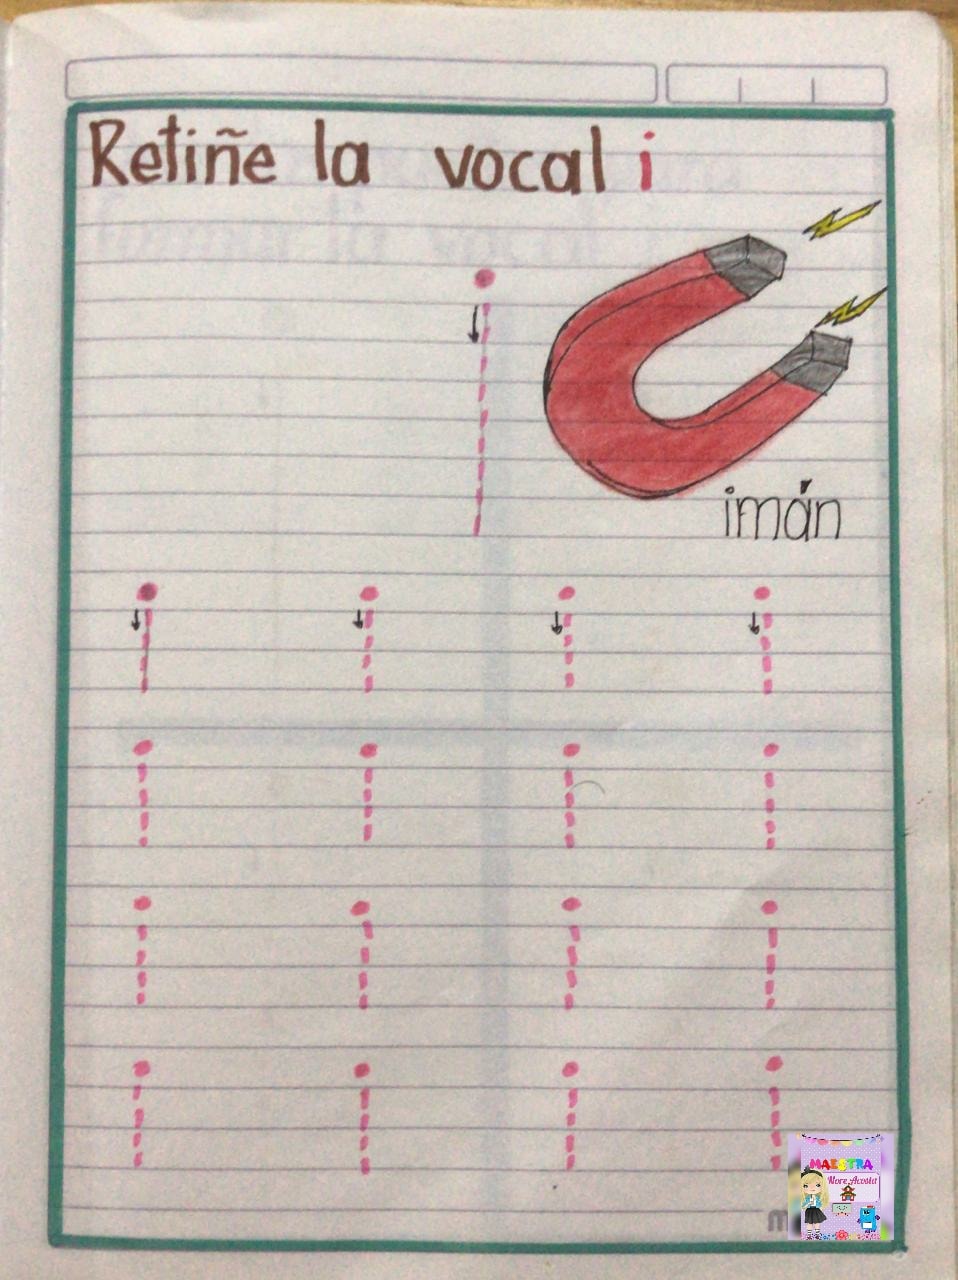 Retiñe la vocal i
imán
i
i i i i
i i i i
i i i i
i i i i
MAESTRA
Nore Acosta